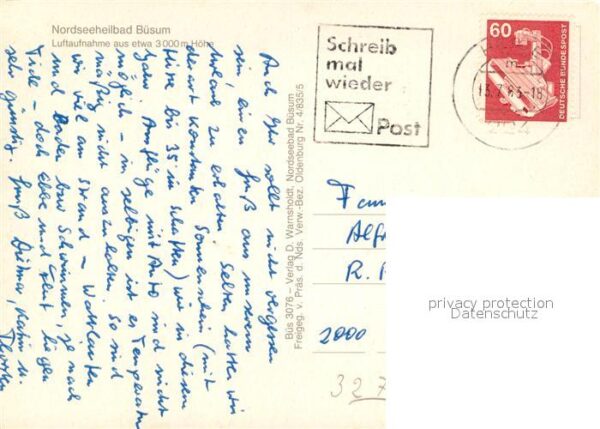 Nordseeheilbad Büsum
Luftaufnahme aus etwa 3000 m Höhe
Auch Ihr sollt nicht vergessen
sein, einen Gruß aus unserem
Urlaub zu erhalten. Selten hatten wir
derart konstanten Sonnenschein (mit
Hitze bis 35 im Schatten) wie in diesem
Jahr. Ausflüge mit Auto sind nicht
möglich – in selbigen ist es temperatur
mäßig nicht auszuhalten. So sind
wir viel am Strand – Wattlaufen
und Baden bzw Schwimmen, je nach
Tide – doch Ebbe und Flut liegen
sehr günstig. Gruß Dietmar, Karin u.
Thorsten
Büs 3076 – Verlag D. Warnsholdt, Nordseebad Büsum
Freigeg. v. Präs. d. Nds. Verw.-Bez. Oldenburg Nr. 4/835/5
Schreib
mal
wieder
Post
60
DEUTSCHE BUNDESPOST
13.7.83-18
Fam
Alf
R.
2000
327
privacy protection
Datenschutz